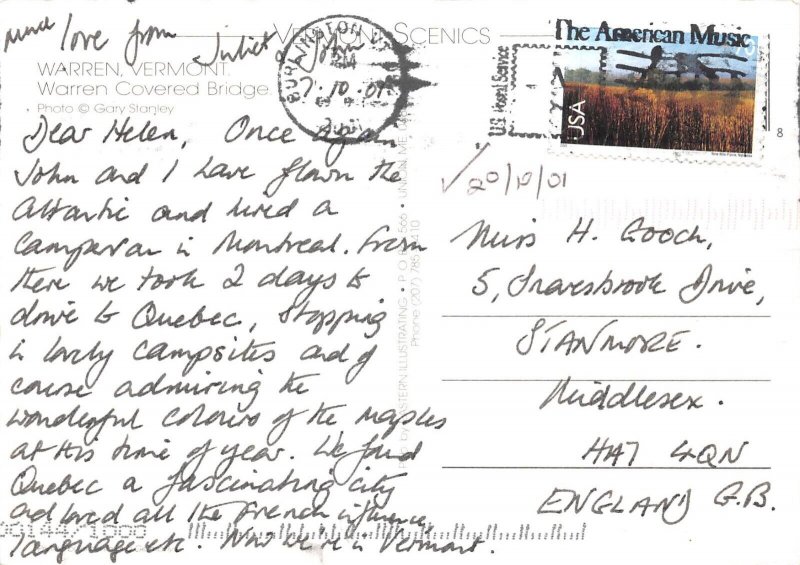 VERMONT SCENICS
WARREN, VERMONT.
Warren Covered Bridge.
Photo © Gary Stanley
Dear Helen, Once again
John and I have flown the
Atlantic and hired a
Campervan in Montreal. From
there we took 2 days to
drive to Quebec, stopping
in lovely campsites and of
course admiring the
wonderful colours of the maples
at this time of year. We found
Quebec a fascinating city
and loved all the French influence,
language etc. Now we're in Vermont.
Much love from Juliet & John
BURLINGTON
PM
7 10 01
The American Music
U.S. Postal Service
USA
8
✓ 20/10/01
Miss H. Gooch,
5, Snaresbrook Drive,
STANMORE.
Middlesex.
HA7 4QN
ENGLAND G.B.
EASTERN ILLUSTRATING • P O B 566 • UNION, ME
Phone (207) 785